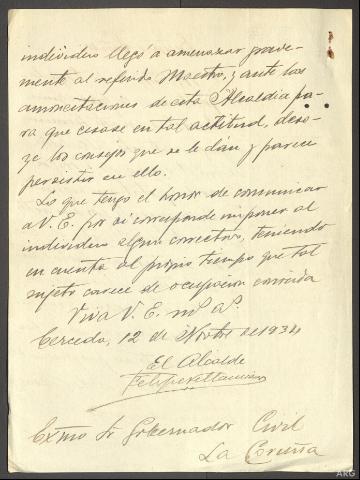 individuo llegó a amenazar grave-
mente al referido Maestro, y ante las
amonestaciones de esta Alcaldía pa-
ra que cesase en tal actitud, deso-
ye los consejos que se le dan y parece
persistir en ello.
Lo que tengo el honor de comunicar
a V. E. por si corresponde imponer al
individuo algún correctivo, teniendo
en cuenta al propio tiempo que tal
sujeto carece de ocupación conocida
Viva V. E. ms. as.
Cerceda, 12 de Novbre de 1934
El Alcalde
Felipe
Exmo Sr Gobernador Civil
La Coruña
ARG